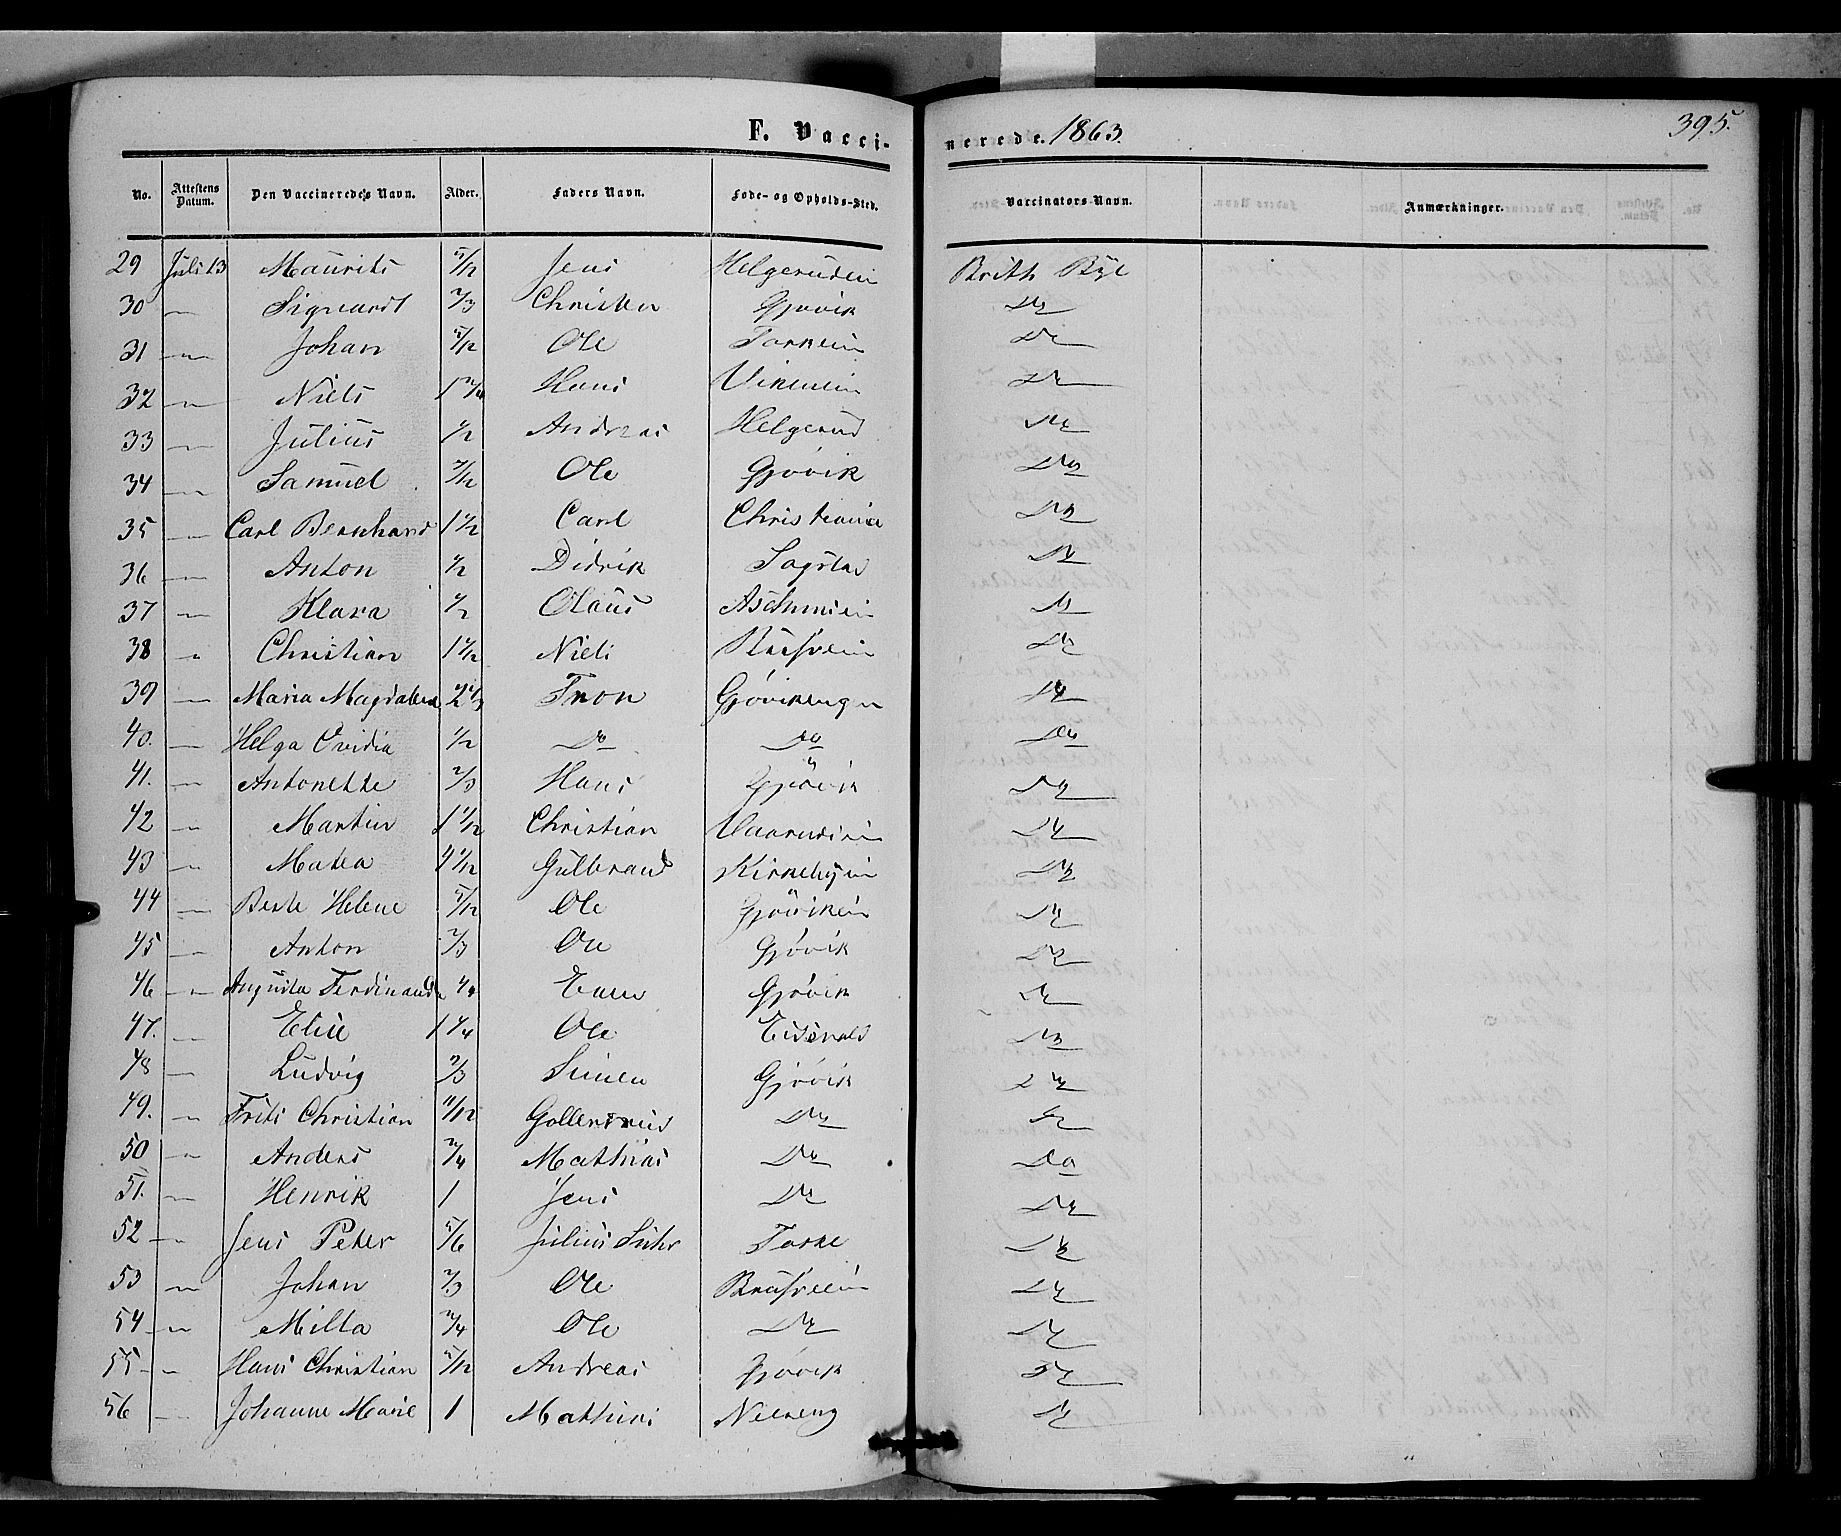 F. Vaccinerede. 1863. 395.
No. Attestens Datum. Den Vaccineredes Navn. Alder. Faders Navn. Føde- og Opholds-Sted. Vaccinators Navn. Anmærkninger.
29 Juli 13 Maurits 5/12 Jens Helgerudein Brith Bye
30 — Siguardt 2/3 Christen Gjøvik Do
31 — Johan 5/12 Ole Do
32 — Niels Hans Do
33 — Julius 1/2 Andreas Helgerud Do
34 — Samuel Ole Gjøvik Do
35 — Carl Bernhard 1 1/2 Carl Christiania Do
36 — Anton 1/2 Didrik Sogstad Do
37 — Klara 1/2 Olaus Do
38 — Christian 1 1/2 Niels Do
39 — Maria Magdalena 2 1/3 Tron Gjøvikengen Do
40. — Helga Ovidia 1/2 Do Do Do
41. — Antonette 2/3 Hans Gjøvik Do
42 — Martin Christian Do
43 — Matea Gulbrand Kirkebyin Do
44 — Berte Helene 5/12 Ole Gjøvikein Do
45 — Anton 2/3 Ole Gjøvik Do
46 — Augusta Ferdinanda Gjøvik Do
47. — Elise 1 1/4 Ole Eidsvold Do
48 — Ludvig 2/3 Simen Gjøvik Do
49. — Frits Christian 11/12 Do Do
50 — Anders 3/4 Mathias Do Do
51. — Henrik 1 Jens Do Do
52 — Jens Peter 5/6 Julius Suhr Do
53 — Johan 2/3 Ole Do
54 — Milla 3/4 Ole Do Do
55 — Hans Christian 5/12 Andreas Gjøvik Do
56 — Johanne Marie 1 Mathias Do